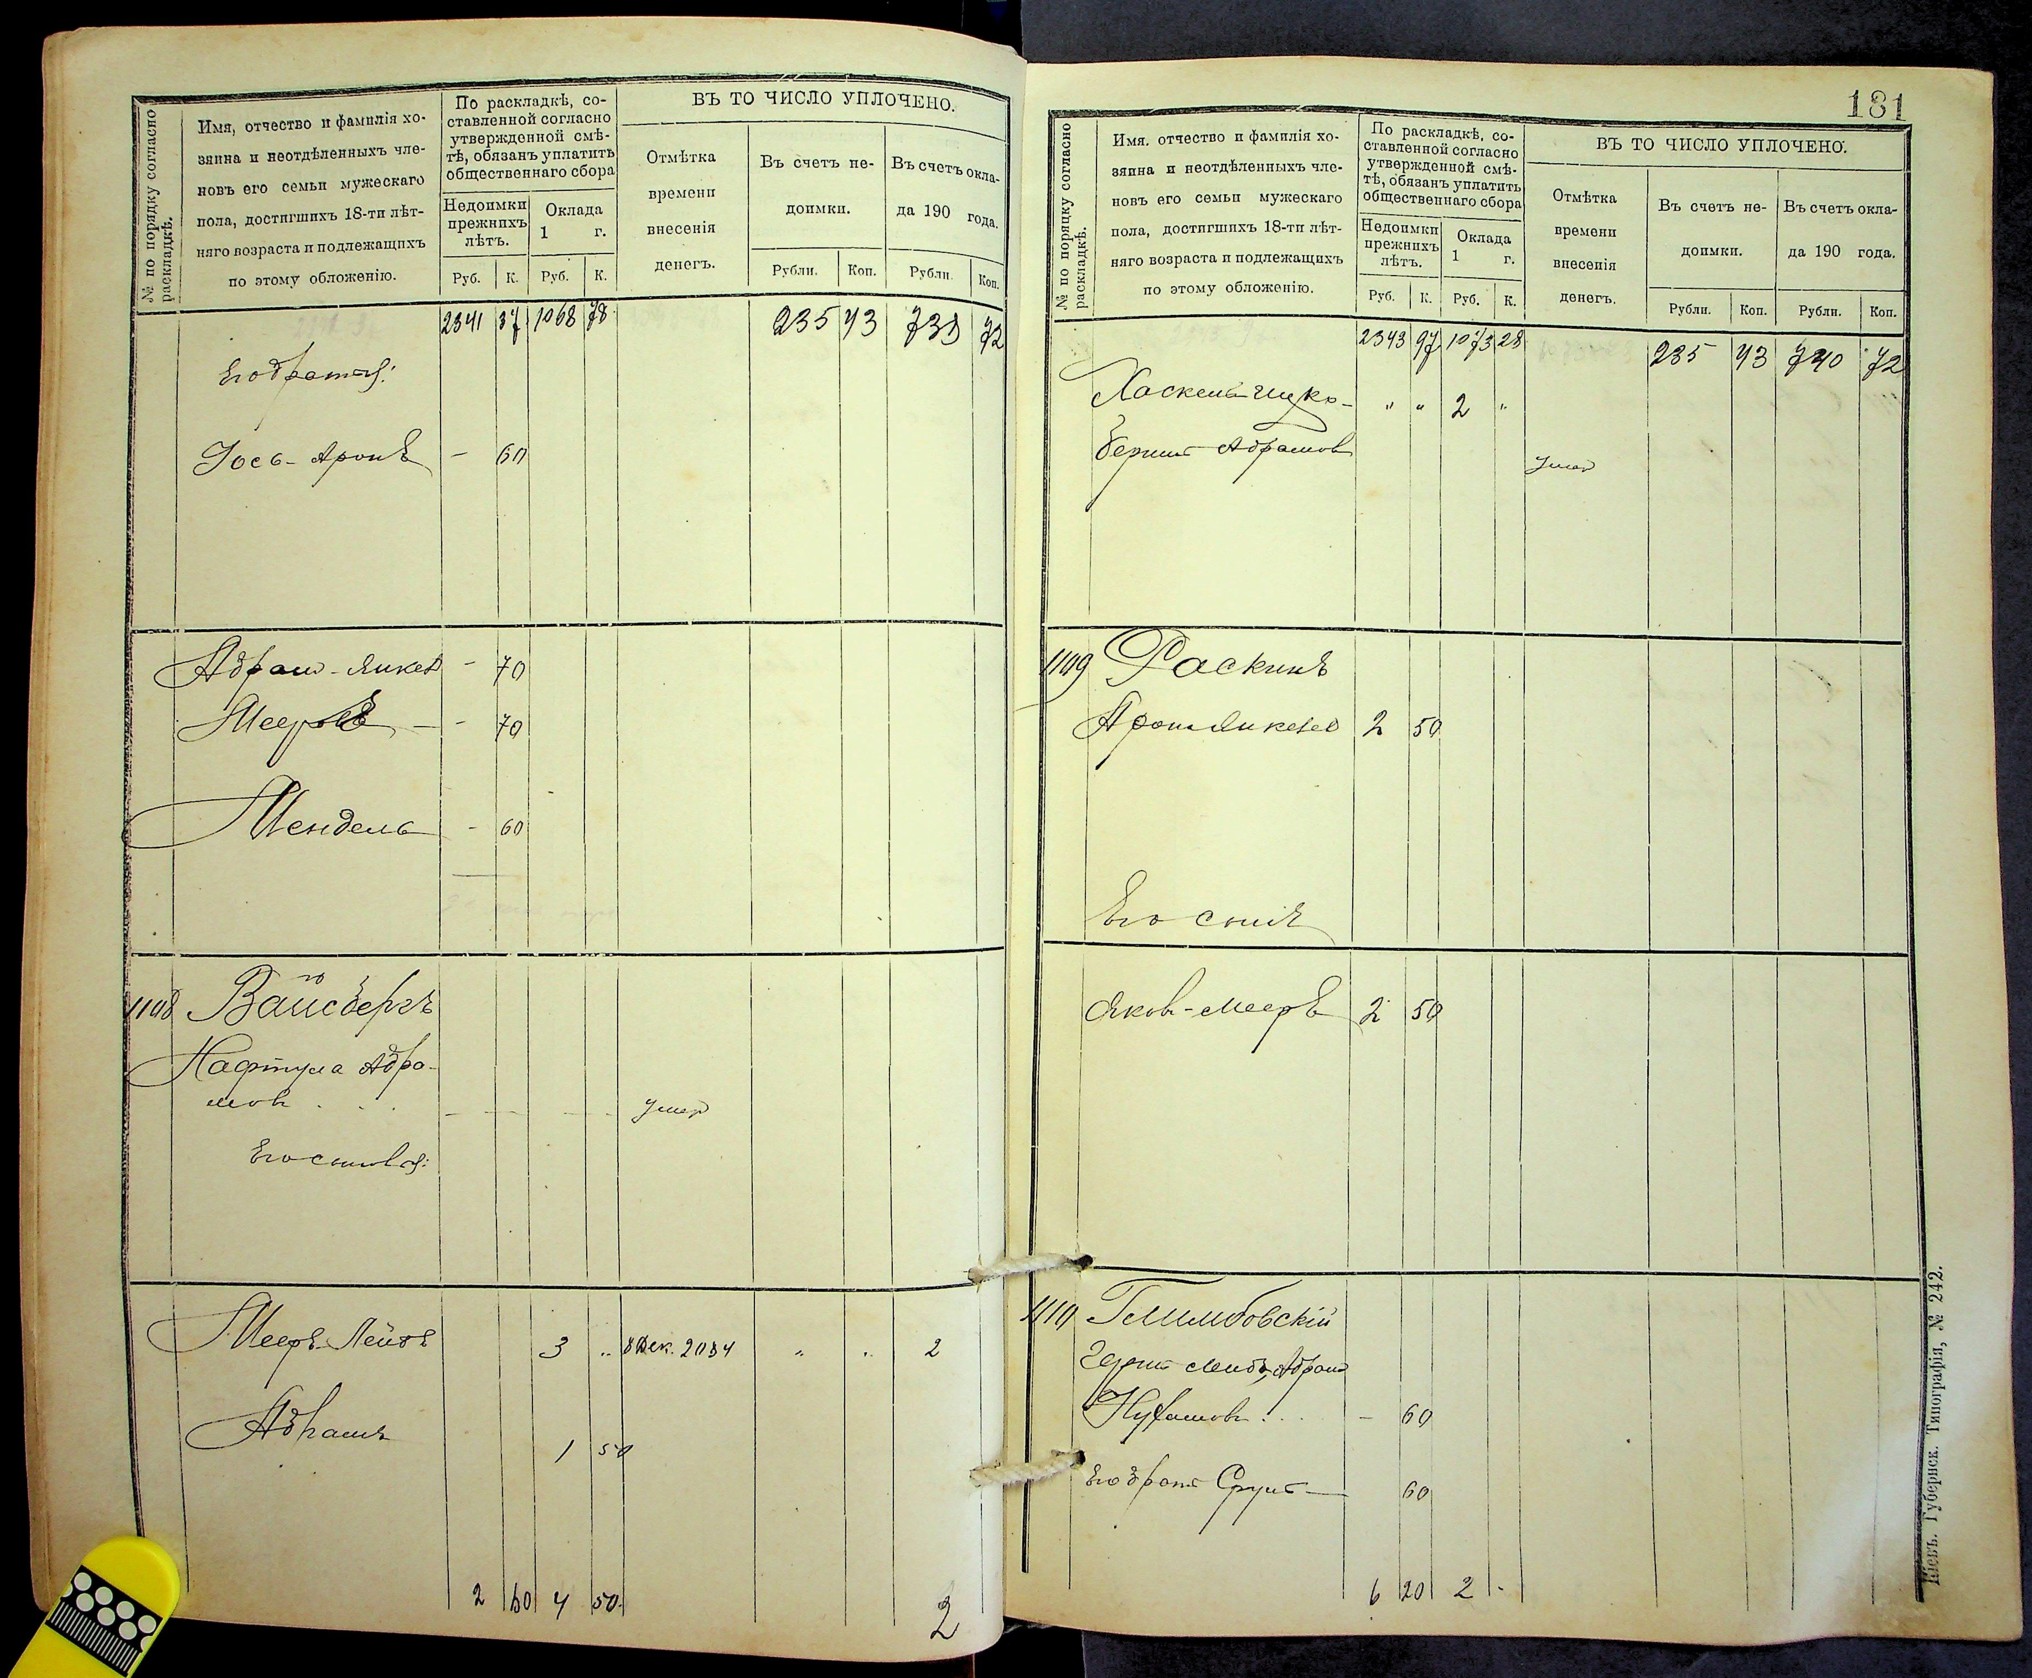 № по порядку согласно раскладкѣ.
Имя, отчество и фамилія хо-
зяина и неотдѣленныхъ чле-
новъ его семьи мужескаго
пола, достигшихъ 18-ти лѣт-
няго возраста и подлежащихъ
по этому обложенію.
По раскладкѣ, со-
ставленной согласно
утвержденной смѣ-
тѣ, обязанъ уплатить
общественнаго сбора
Недоимки прежнихъ лѣтъ.
Оклада 1 г.
Руб. К. Руб. К.
ВЪ ТО ЧИСЛО УПЛОЧЕНО.
Отмѣтка
времени
внесенія
денегъ.
Въ счетъ не-
доимки.
Рубли. Коп.
Въ счетъ окла-
да 190 года.
Рубли. Коп.
2341 37 1068 78 235 43 738 72
Его братья:
Іось-Аронъ - 60
Абрам-Янкел - 70
Мееръ - 70
Мендель - 60
1108 Вайсбергъ
Нафтула Абра-
мов . . . умер
Его сыновья:
Мееръ-Лейбъ 3 " 8 Дек. 2034 " " 2
Абрамъ 1 50
2 60 4 50 2
131
№ по порядку согласно раскладкѣ.
Имя. отчество и фамилія хо-
зяина и неотдѣленныхъ чле-
новъ его семьи мужескаго
пола, достигшихъ 18-ти лѣт-
няго возраста и подлежащихъ
по этому обложенію.
По раскладкѣ, со-
ставленной согласно
утвержденной смѣ-
тѣ, обязанъ уплатить
общественнаго сбора
Недоимки прежнихъ лѣтъ.
Оклада 1 г.
Руб. К. Руб. К.
ВЪ ТО ЧИСЛО УПЛОЧЕНО.
Отмѣтка
времени
внесенія
денегъ.
Въ счетъ не-
доимки.
Рубли. Коп.
Въ счетъ окла-
да 190 года.
Рубли. Коп.
2343 97 1073 28 235 43 740 72
Хаскель-Ицко- " " 2 "
Берши Абрамов умер
1109 Раскинъ
Арон Янкелев 2 50
Его сынъ
Яков-Мееръ 2 50
1110
Герш Лейб, Абрам
Нухимов . . . - 60
Его брат Сруль 60
6 20 2 -
Кіевъ. Губернск. Типографія, № 242.